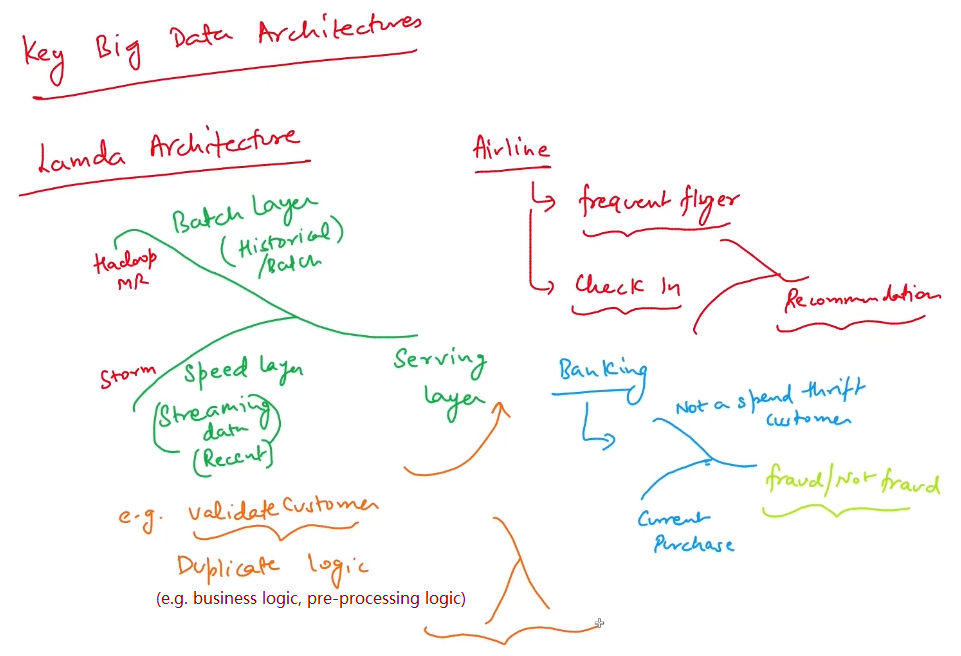 Key Big Data Architectures
Lamda Architecture
Batch Layer
(Historical)
/Batch
Hadoop
MR
Storm
Speed layer
(Streaming
data
(Recent)
Serving
layer
e.g. validateCustomer
Duplicate logic
(e.g. business logic, pre-processing logic)
Airline
frequent flyer
Check In
Recommendation
Banking
Not a spend thrift
customer
Current
Purchase
fraud/Not fraud